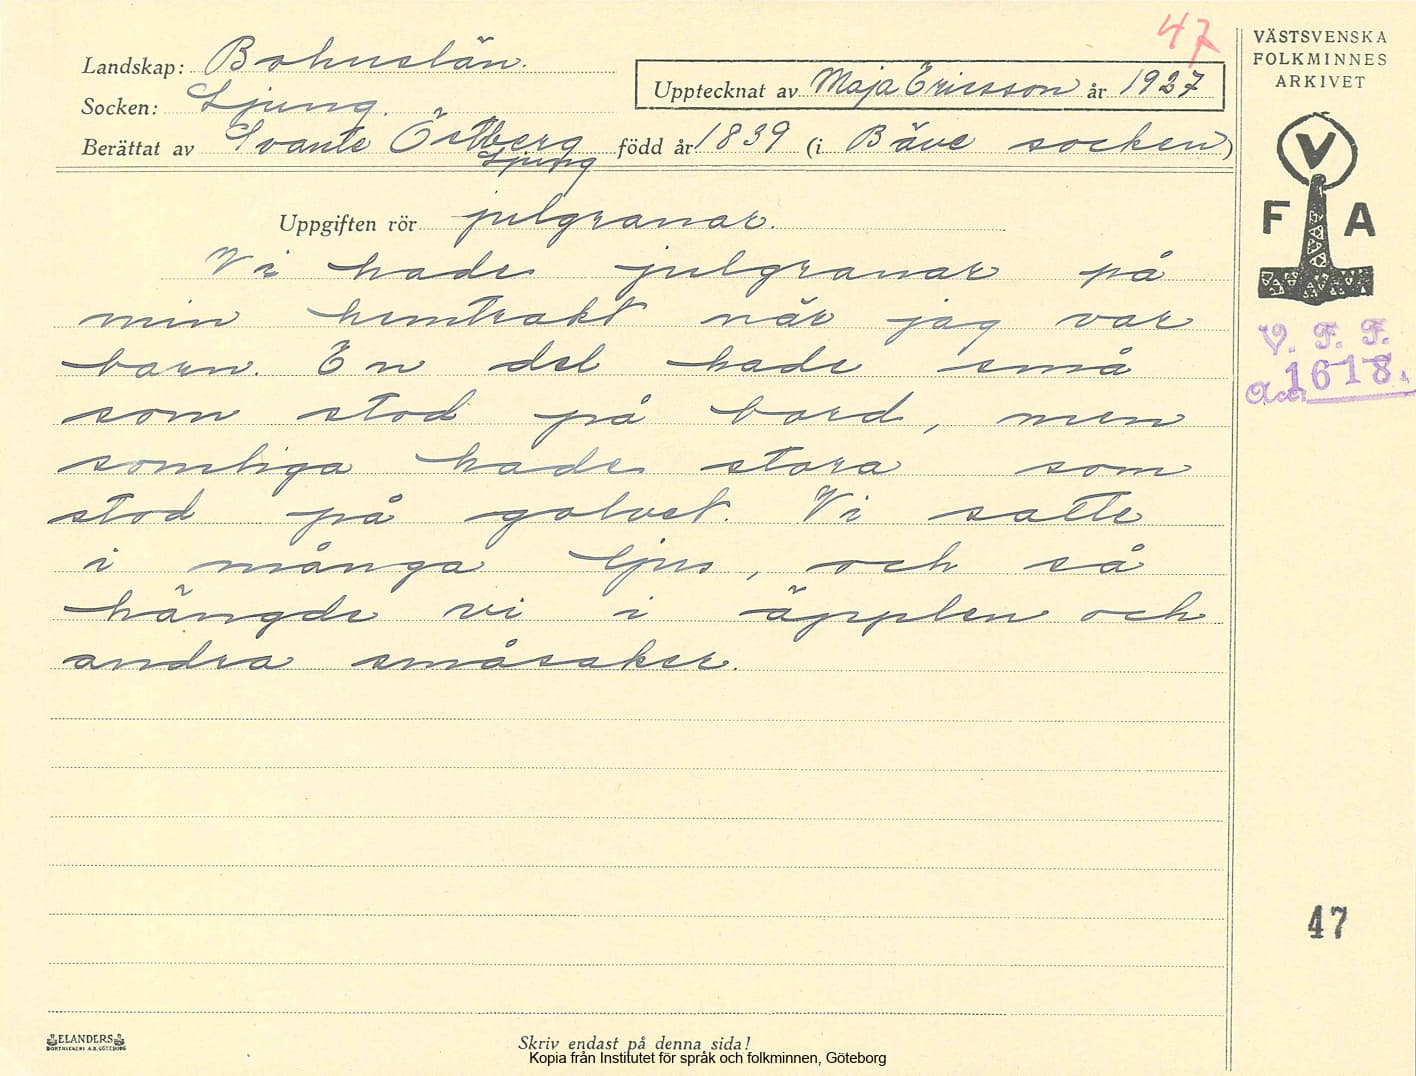 47
VÄSTSVENSKA
FOLKMINNES
ARKIVET
Landskap: Bohuslän.
Upptecknat av Maja Ericsson år 1927
Socken: Ljung.
Berättat av Svante Östberg född år 1839 (i Bäve socken)
Ljung
V
F A
Uppgiften rör julgranar.
Vi hade julgranar på
min hemtrakt när jag var
barn. En del hade små
som stod på bord, men
somliga hade stora som
stod på golvet. Vi satte
i många ljus, och så
hängde vi i äpplen och
andra småsaker.
V. F. F.
Acc. 1618.
47
ELANDERS
BOKTRYCKERI A.B. GÖTEBORG
Skriv endast på denna sida!
Kopia från Institutet för språk och folkminnen, Göteborg